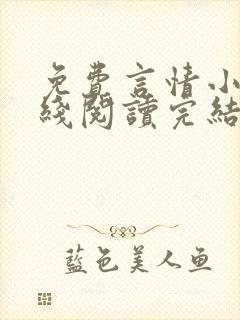 免費言情小
綫閱讀完結
藍色美人魚